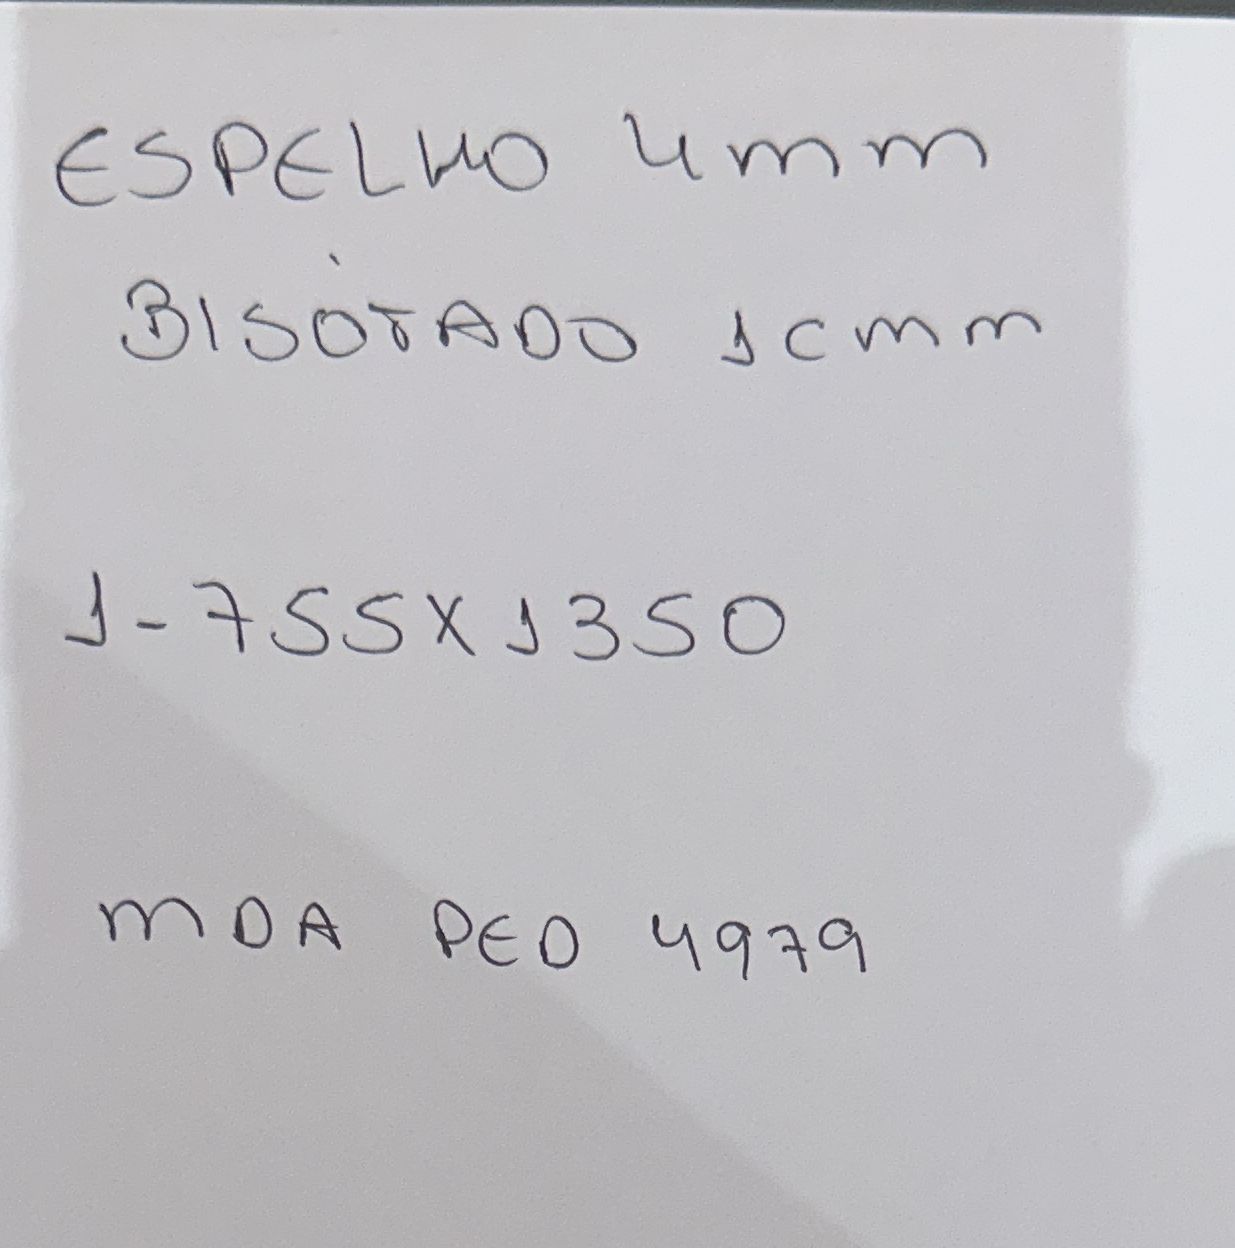 ESPELHO 4mm
BISOTADO 1cmm
1-755X1350
MDA PED 4979